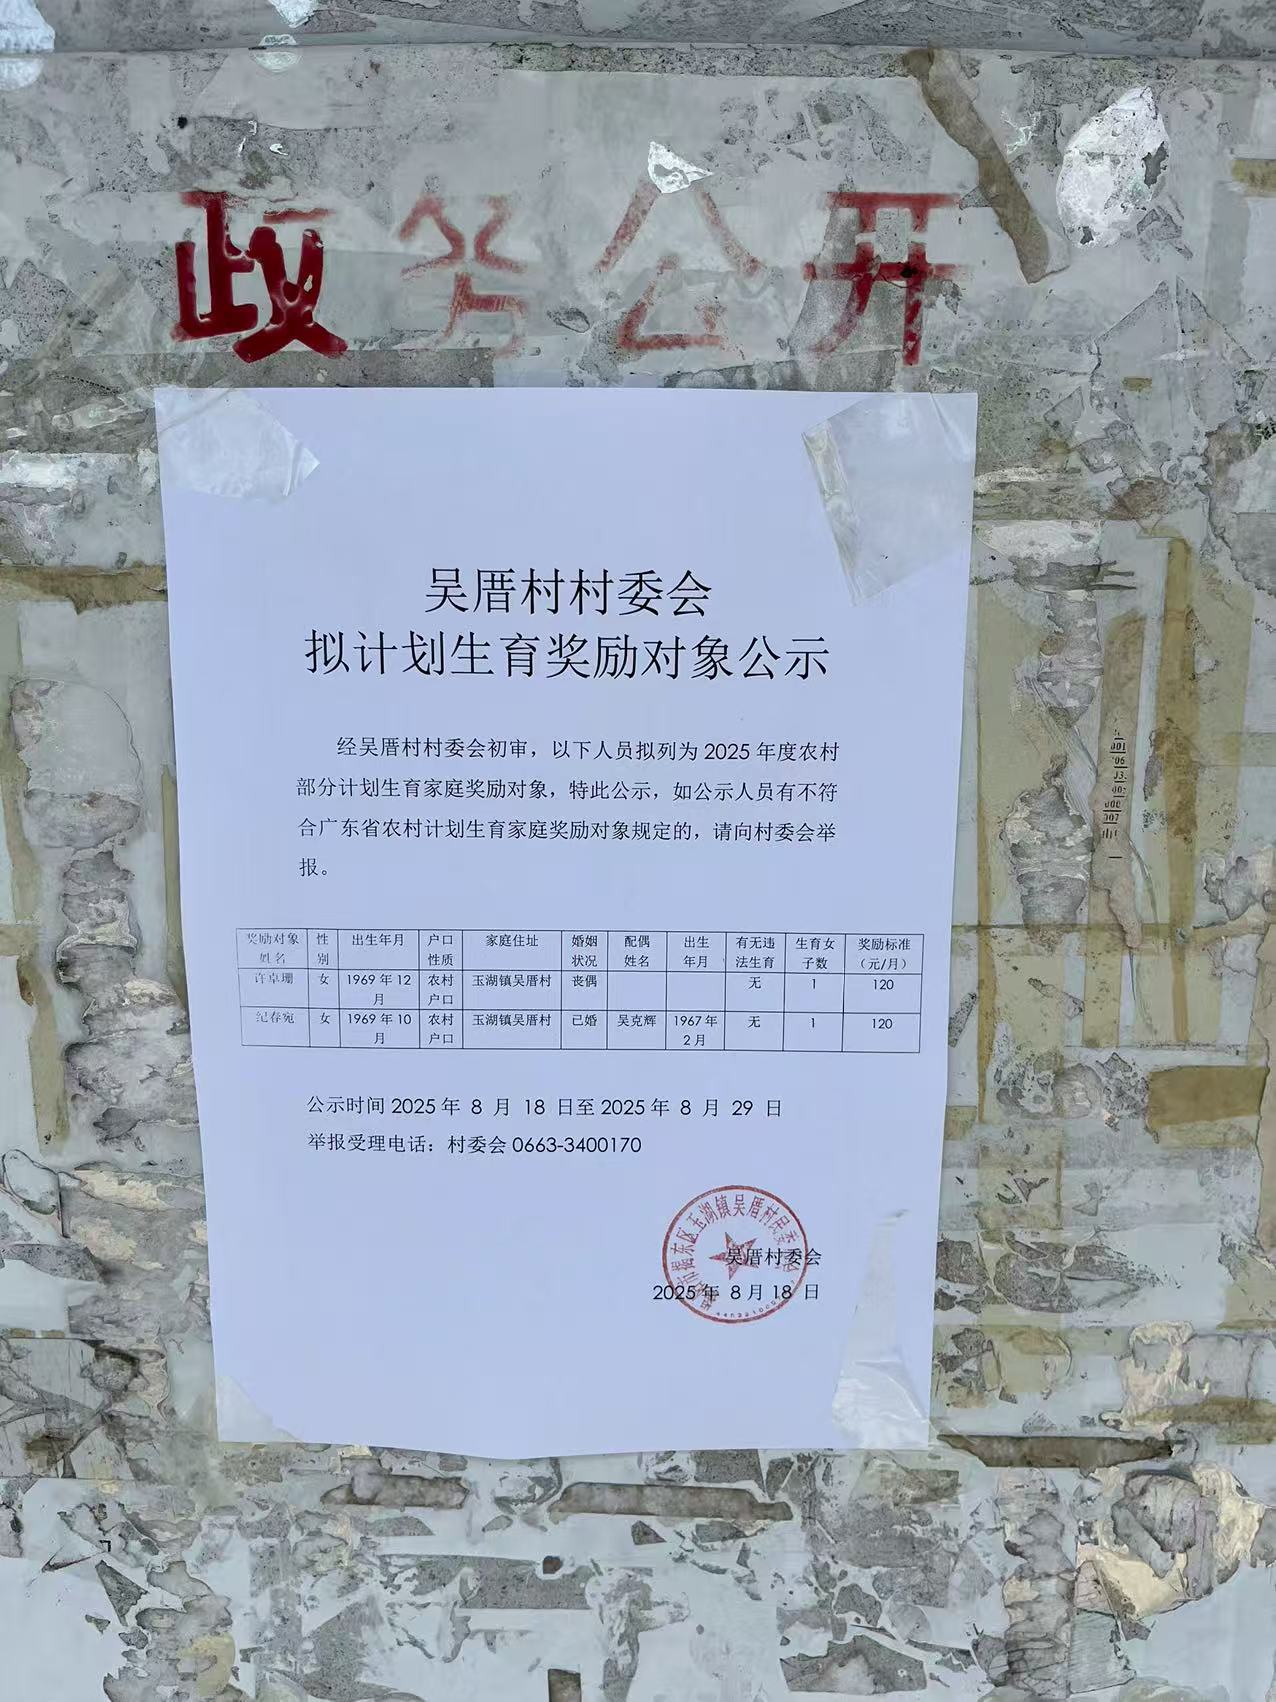 政务公开
吴厝村村委会
拟计划生育奖励对象公示
经吴厝村村委会初审，以下人员拟列为 2025 年度农村
部分计划生育家庭奖励对象，特此公示，如公示人员有不符
合广东省农村计划生育家庭奖励对象规定的，请向村委会举
报。
奖励对象姓名 性别 出生年月 户口性质 家庭住址 婚姻状况 配偶姓名 出生年月 有无违法生育 生育女子数 奖励标准（元/月）
许卓珊 女 1969 年 12 月 农村户口 玉湖镇吴厝村 丧偶 无 1 120
纪春宛 女 1969 年 10 月 农村户口 玉湖镇吴厝村 已婚 吴克辉 1967 年 2 月 无 1 120
公示时间 2025 年 8 月 18 日至 2025 年 8 月 29 日
举报受理电话：村委会 0663-3400170
揭东区玉湖镇吴厝村民委
吴厝村委会
2025 年 8 月 18 日